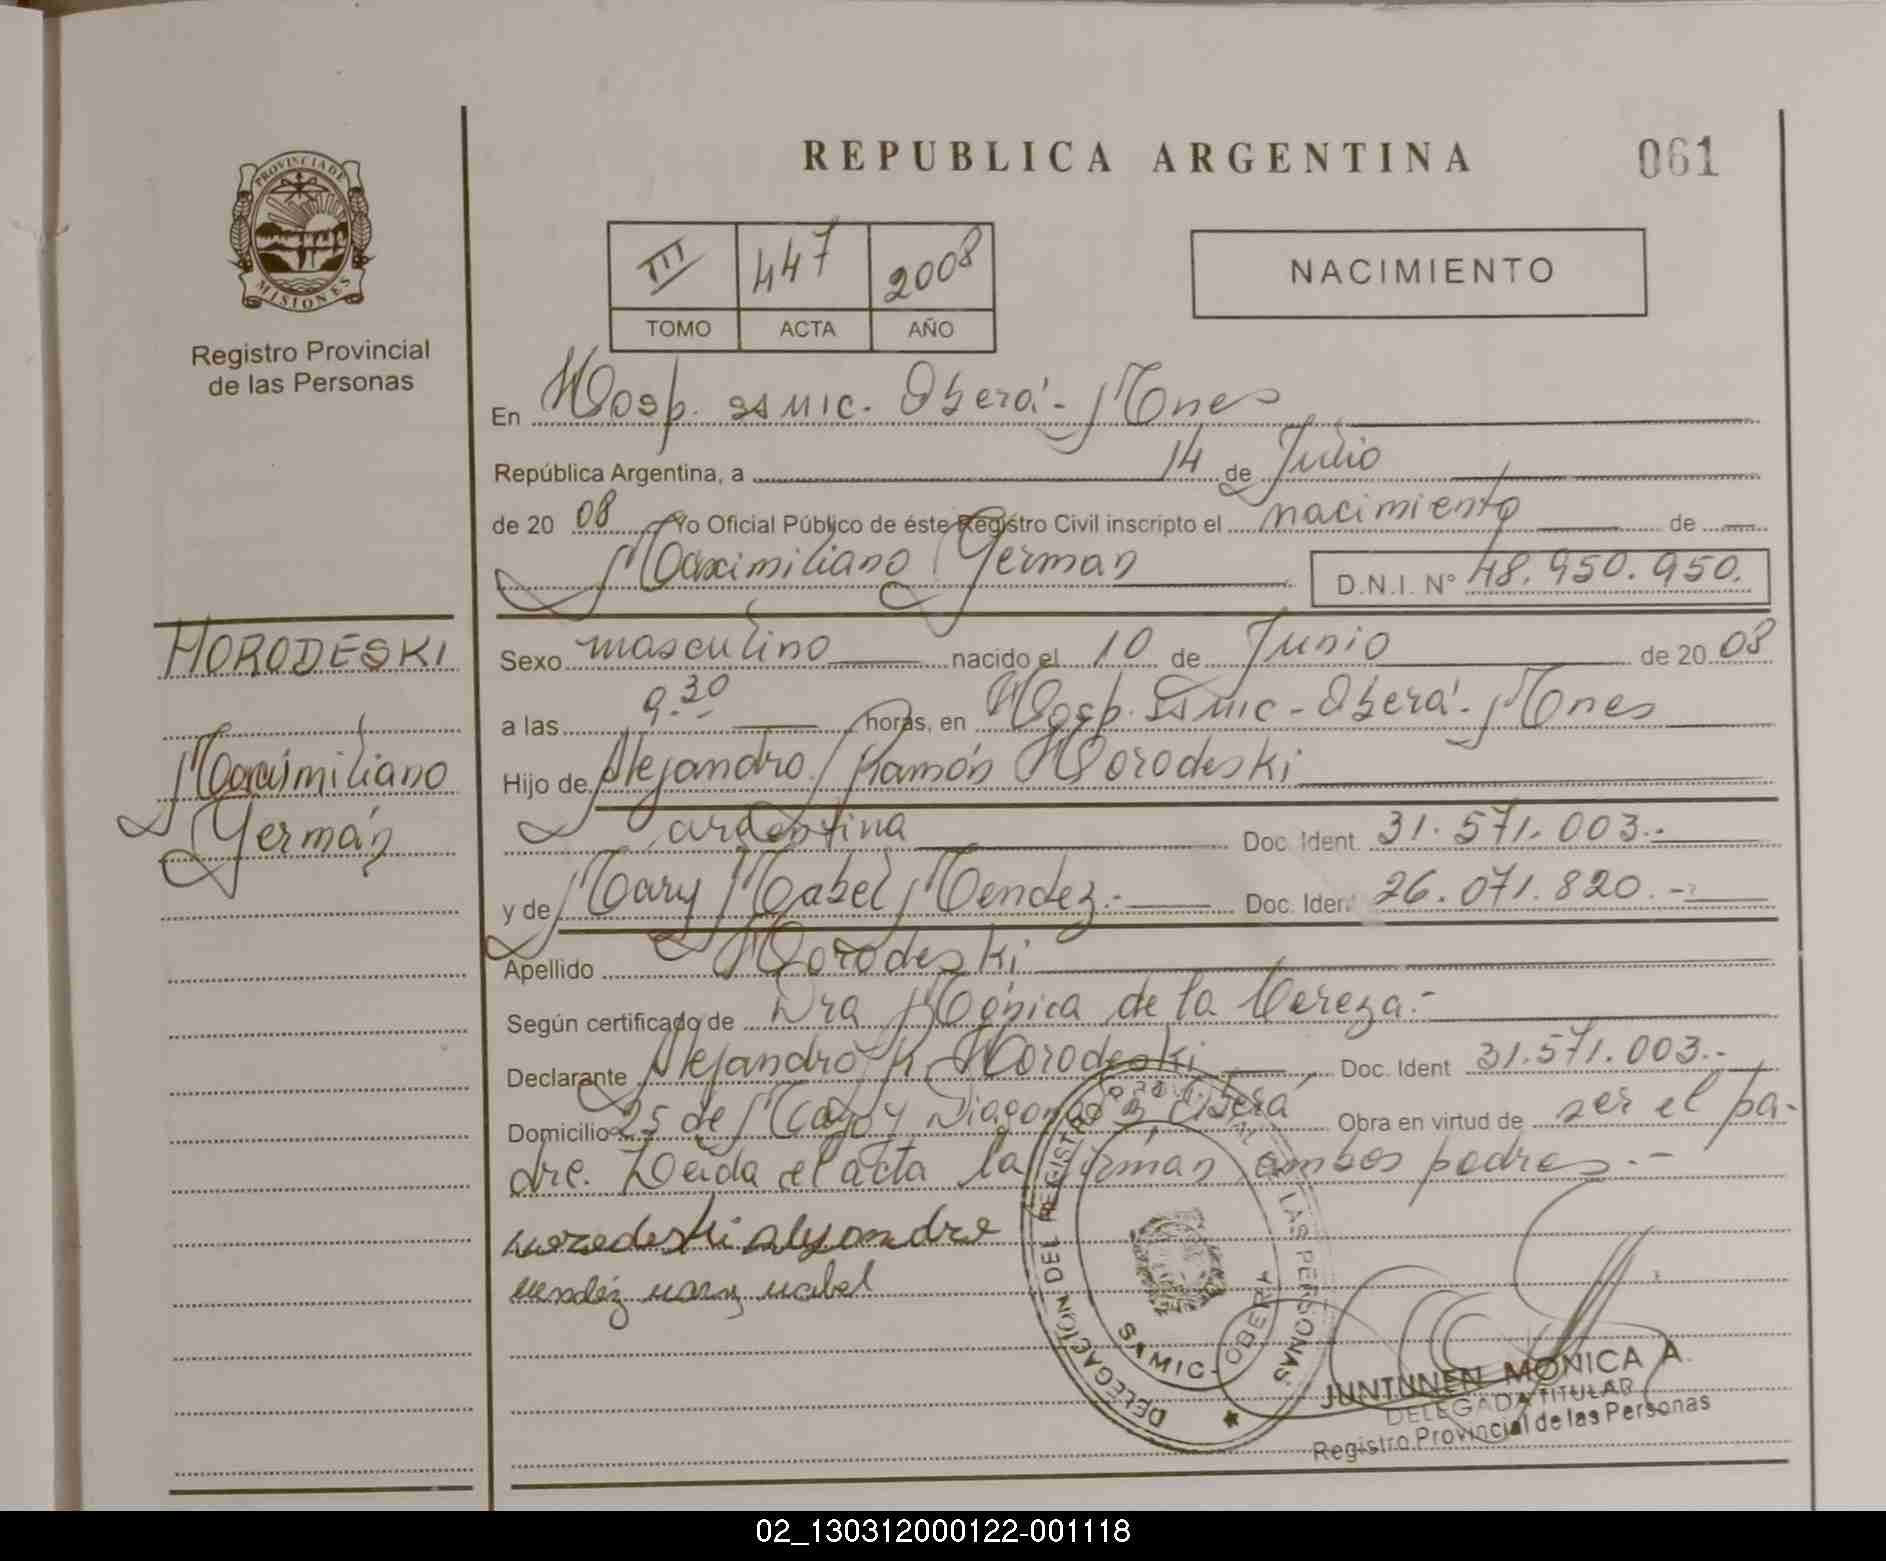 REPUBLICA ARGENTINA
061
PROVINCIA DE
MISIONES
Registro Provincial
de las Personas
III 447 2008
TOMO ACTA AÑO
NACIMIENTO
En Hosp. SAMIC. Oberá - Mnes
República Argentina, a 14 de Julio
de 20 08 Yo Oficial Público de éste Registro Civil inscripto el nacimiento de
Maximiliano German D.N.I. Nº 48.950.950.
HORODESKI
Maximiliano
Germán
Sexo masculino nacido el 10 de Junio de 20 08
a las 9.30 horas, en Hosp. SAMIC - Oberá - Mnes
Hijo de Alejandro Ramón Horodeski
argentina Doc. Ident. 31.571.003.-
y de Mary Mabel Mendez.- Doc. Iden. 26.071.820.-
Apellido Horodeski
Según certificado de Dra Mónica de la Cereza.-
Declarante Alejandro R. Horodeski, Doc. Ident 31.571.003.-
Domicilio 25 de Mayo y Diagonal Oberá Obra en virtud de ser el pa-
dre. Leida el acta la firman ambos padres.-
Horodeski alejandro
mendez mary mabel
DELEGACION DEL REGISTRO PROVINCIAL LAS PERSONAS
SAMIC - OBERA
JUNTUNEN MONICA A.
DELEGADA TITULAR
Registro Provincial de las Personas
02_130312000122-001118